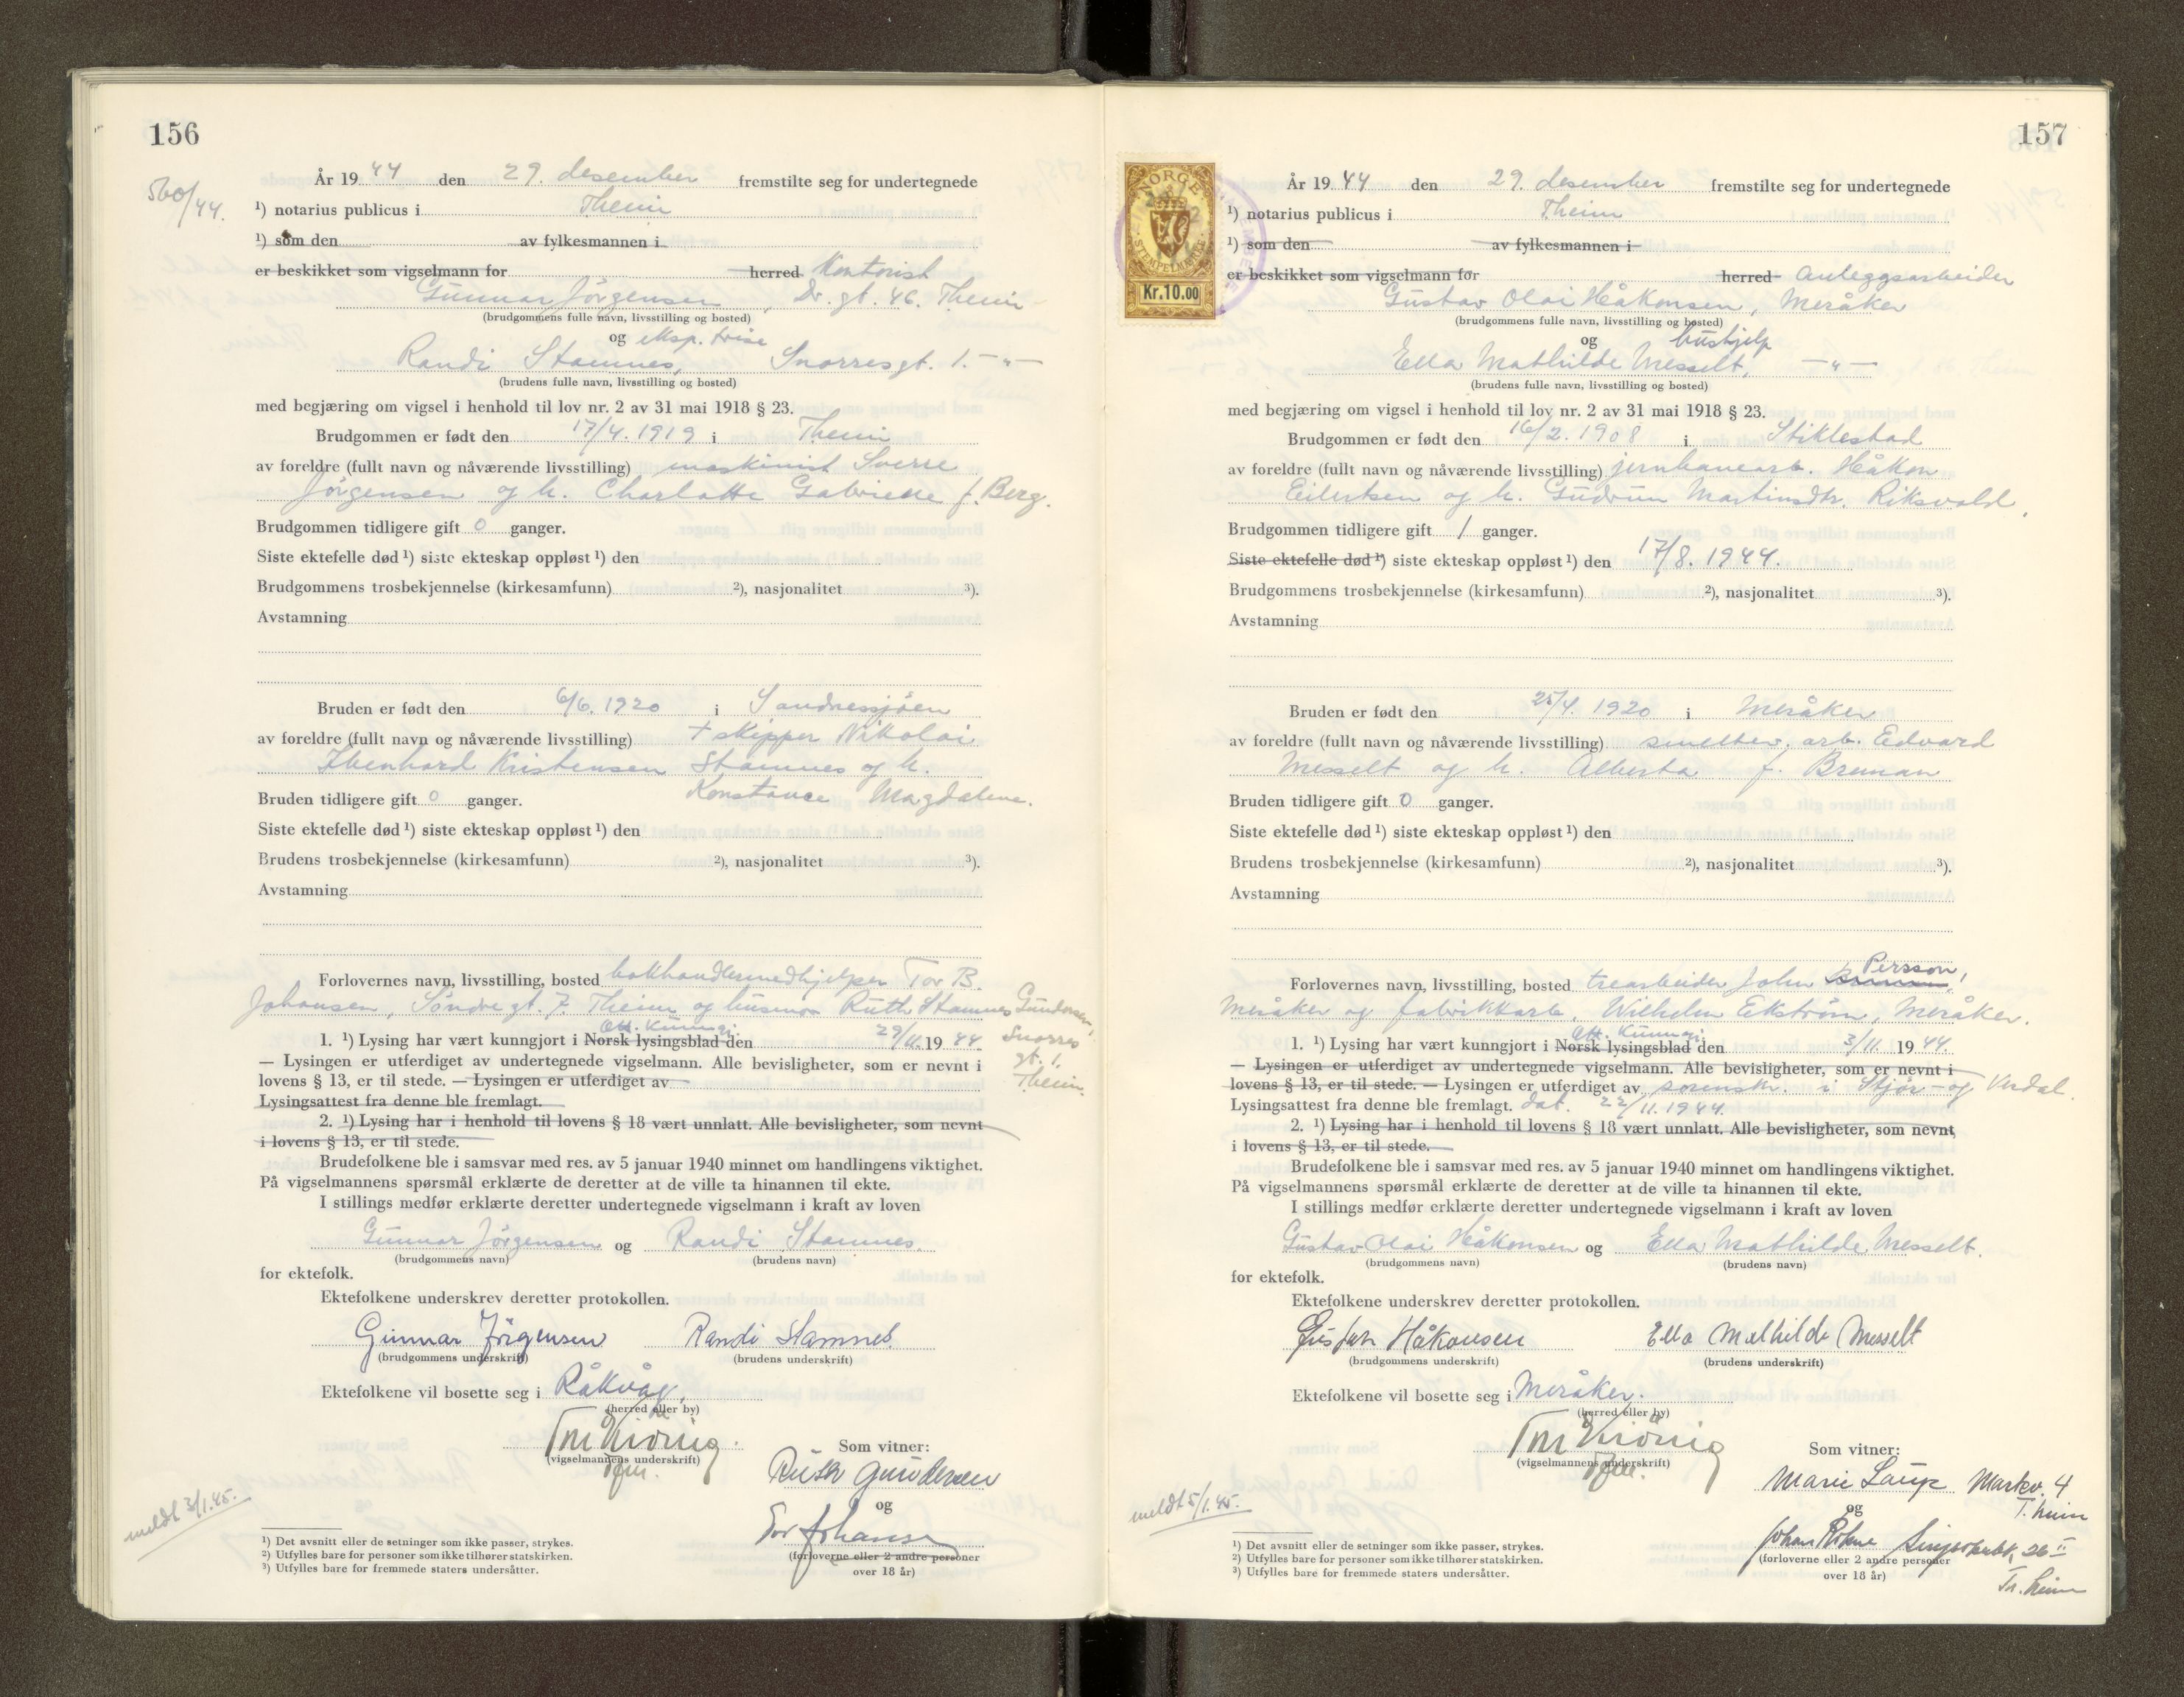 156
560/44.
År 1944 den 29. desember fremstilte seg for undertegnede
¹) notarius publicus i Theim
¹) som den av fylkesmannen i
er beskikket som vigselmann for herred Kontorist
Gunnar Jörgensen, Dr. gt. 46. Theim
(brudgommens fulle navn, livsstilling og bosted)
og eksp. trise
Randi Stamnes, Snorresgt. 1. -"-
(brudens fulle navn, livsstilling og bosted)
med begjæring om vigsel i henhold til lov nr. 2 av 31 mai 1918 § 23.
Brudgommen er født den 17/4. 1919 i Theim
av foreldre (fullt navn og nåværende livsstilling) maskinist Sverre
Jörgensen og h. Charlotte Gabrielle f. Berg.
Brudgommen tidligere gift 0 ganger.
Siste ektefelle død ¹) siste ekteskap oppløst ¹) den
Brudgommens trosbekjennelse (kirkesamfunn) ²), nasjonalitet ³).
Avstamning
Bruden er født den 6/6. 1920 i Sandnessjöen
av foreldre (fullt navn og nåværende livsstilling) + skipper Nikolai
Ebenhard Kristensen Stamnes og h.
Konstance Magdalene.
Bruden tidligere gift 0 ganger.
Siste ektefelle død ¹) siste ekteskap oppløst ¹) den
Brudens trosbekjennelse (kirkesamfunn) ²), nasjonalitet ³).
Avstamning
Forlovernes navn, livsstilling, bosted bokhandlermedhjelper Tor B.
Johansen, Söndregt. 7. Theim og husmor Ruth Stamnes Gundersen,
Snorres gt. 1, Theim.
Off. Kunngj.
1. ¹) Lysing har vært kunngjort i Norsk lysingsblad den 29/11. 1944.
— Lysingen er utferdiget av undertegnede vigselmann. Alle bevisligheter, som er nevnt i
lovens § 13, er til stede. — Lysingen er utferdiget av
Lysingsattest fra denne ble fremlagt.
2. ¹) Lysing har i henhold til lovens § 18 vært unnlatt. Alle bevisligheter, som nevnt
i lovens § 13, er til stede.
Brudefolkene ble i samsvar med res. av 5 januar 1940 minnet om handlingens viktighet.
På vigselmannens spørsmål erklærte de deretter at de ville ta hinannen til ekte.
I stillings medfør erklærte deretter undertegnede vigselmann i kraft av loven
Gunnar Jörgensen og Randi Stamnes.
(brudgommens navn) (brudens navn)
for ektefolk.
Ektefolkene underskrev deretter protokollen.
Gunnar Jörgensen Randi Stamnes.
(brudgommens underskrift) (brudens underskrift)
Ektefolkene vil bosette seg i Råkvåg,
(herred eller by)
(vigselmannens underskrift)
Som vitner:
Ruth Gundersen
og
Tor Johansen
(forloverne eller 2 andre personer
over 18 år)
meldt 3/1.45.
¹) Det avsnitt eller de setninger som ikke passer, strykes.
²) Utfylles bare for personer som ikke tilhører statskirken.
³) Utfylles bare for fremmede staters undersåtter.
157
NORGE
STEMPELMERKE
Kr.10.00
År 1944 den 29. desember fremstilte seg for undertegnede
¹) notarius publicus i Theim
¹) som den av fylkesmannen i
er beskikket som vigselmann for herred anleggsarbeider
Gustav Olai Håkonsen, Meråker
(brudgommens fulle navn, livsstilling og bosted)
og hushjelp
Ella Mathilde Messelt, -"-
(brudens fulle navn, livsstilling og bosted)
med begjæring om vigsel i henhold til lov nr. 2 av 31 mai 1918 § 23.
Brudgommen er født den 16/2. 1908 i Stiklestad
av foreldre (fullt navn og nåværende livsstilling) jernbanearb. Håkon
Eilertsen og h. Gudrun Martinsdtr. Riksvold.
Brudgommen tidligere gift 1 ganger.
Siste ektefelle død ¹) siste ekteskap oppløst ¹) den 17/8. 1944.
Brudgommens trosbekjennelse (kirkesamfunn) ²), nasjonalitet ³).
Avstamning
Bruden er født den 25/4. 1920 i Meråker
av foreldre (fullt navn og nåværende livsstilling) smeltev. arb. Edvard
Messelt og h. Alberta f. Breman
Bruden tidligere gift 0 ganger.
Siste ektefelle død ¹) siste ekteskap oppløst ¹) den
Brudens trosbekjennelse (kirkesamfunn) ²), nasjonalitet ³).
Avstamning
Forlovernes navn, livsstilling, bosted trearbeider John Persson,
Meråker og fabrikkarb. Wilhelm Ekström, Meråker.
Off. Kunngj.
1. ¹) Lysing har vært kunngjort i Norsk lysingsblad den 3/11. 1944.
— Lysingen er utferdiget av undertegnede vigselmann. Alle bevisligheter, som er nevnt i
lovens § 13, er til stede. — Lysingen er utferdiget av sorenskr. i Stjör- og Verdal.
Lysingsattest fra denne ble fremlagt. dat. 22/11. 1944.
2. ¹) Lysing har i henhold til lovens § 18 vært unnlatt. Alle bevisligheter, som nevnt,
i lovens § 13, er til stede.
Brudefolkene ble i samsvar med res. av 5 januar 1940 minnet om handlingens viktighet.
På vigselmannens spørsmål erklærte de deretter at de ville ta hinannen til ekte.
I stillings medfør erklærte deretter undertegnede vigselmann i kraft av loven
Gustav Olai Håkonsen og Ella Mathilde Messelt.
(brudgommens navn) (brudens navn)
for ektefolk.
Ektefolkene underskrev deretter protokollen.
Gustav Håkonsen Ella Mathilde Messelt
(brudgommens underskrift) (brudens underskrift)
Ektefolkene vil bosette seg i Meråker.
(herred eller by)
(vigselmannens underskrift)
Som vitner:
Marie Laup Markv. 4
T.heim
og
Johan
(forloverne eller 2 andre personer
over 18 år)
Tr.heim
meldt 5/1.45.
¹) Det avsnitt eller de setninger som ikke passer, strykes.
²) Utfylles bare for personer som ikke tilhører statskirken.
³) Utfylles bare for fremmede staters undersåtter.